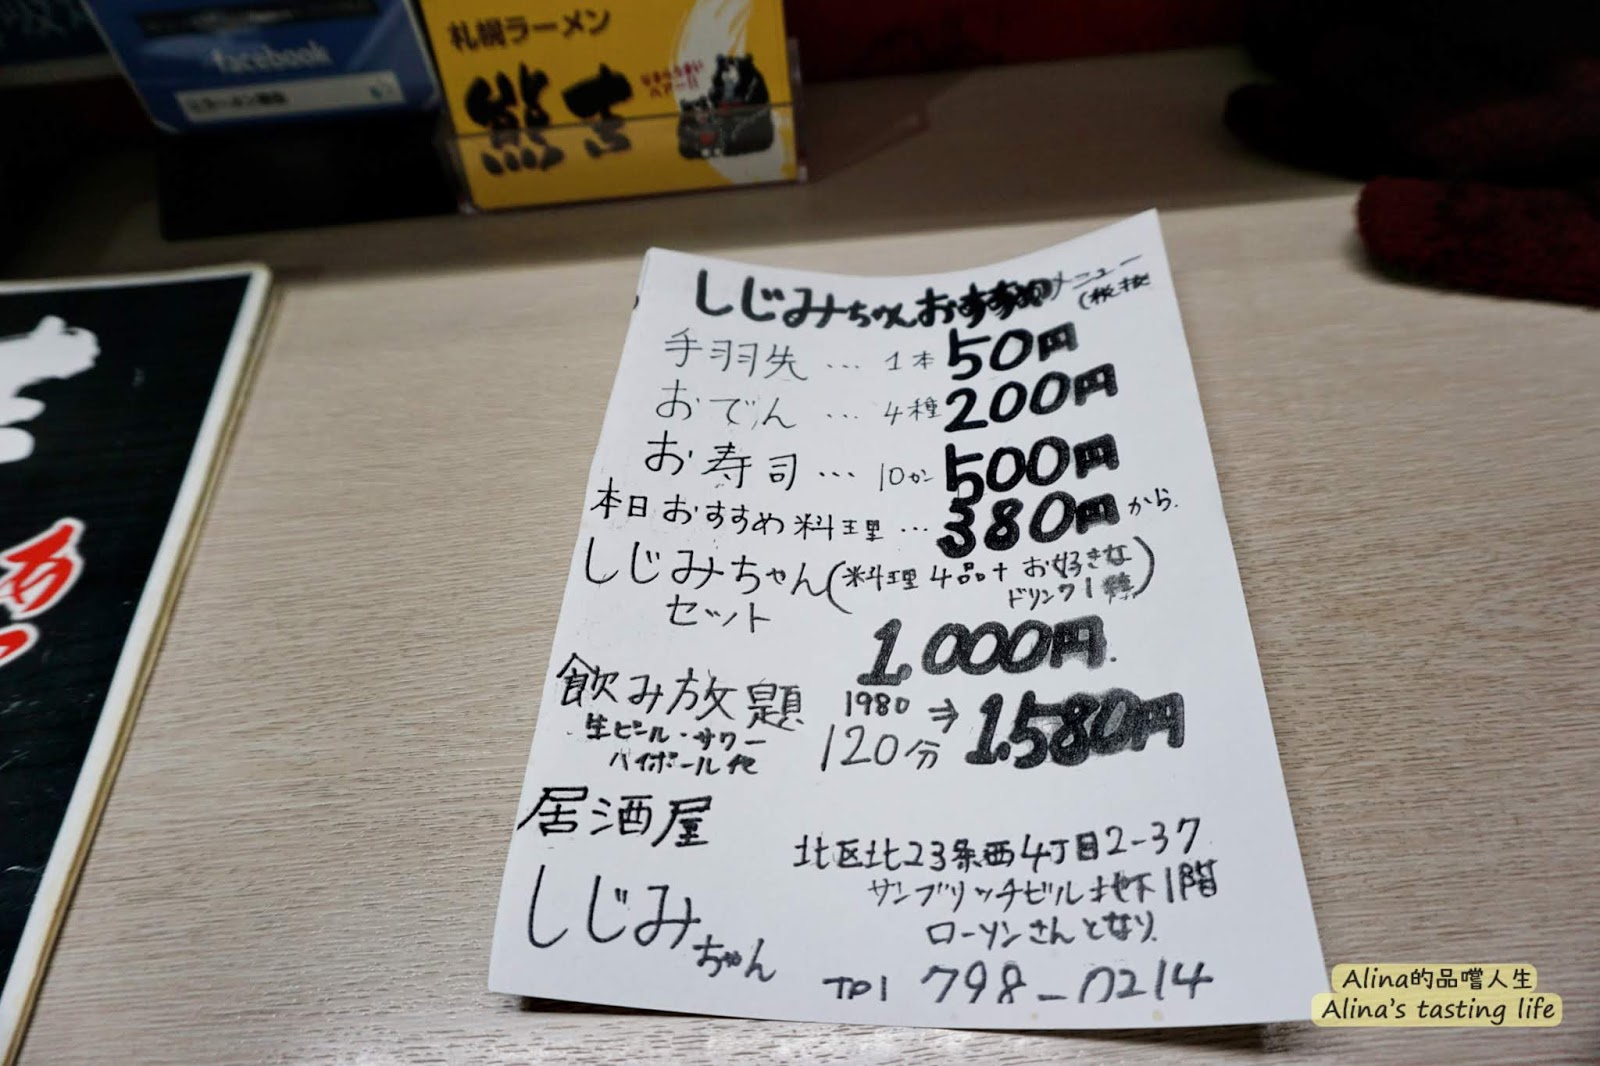 facebook
札幌ラーメン
熊吉
しじみちゃんおすすめメニュー
(税抜
手羽先 … 1本 50円
おでん … 4種 200円
お寿司 … 10カン 500円
本日おすすめ料理 … 380円から.
しじみちゃん(料理4品+お好きな
セット ドリンク1種)
1.000円.
飲み放題 1980 ⇒ 1.580円
生ビール・サワー 120分
ハイボール他
居酒屋
しじみちゃん
北区北23条西4丁目2-37
サンブリッチビル地下1階
ローソンさんとなり.
798-0214
Alina的品嚐人生
Alina's tasting life